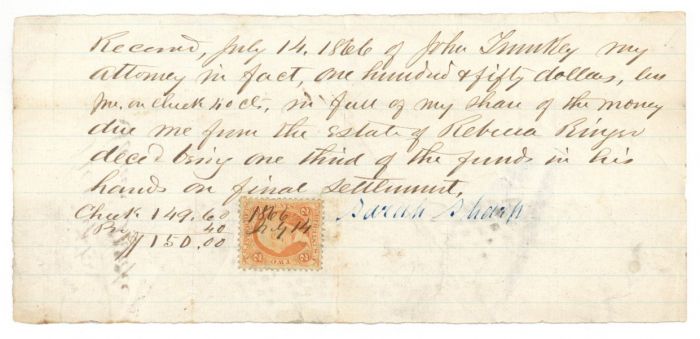 Received, July 14. 1866 of John Trunkey my
attorney in fact, one hundred & fifty dollars, less
pre. on check 40 cts, in full of my share of the money
due me from the estate of Rebecca
decd being one third of the funds in his
hands on final settlement,
Check 149.60
Pre 40
$150.00
Sarah Sharp
1866
July 14
2
2
TWO
2
2